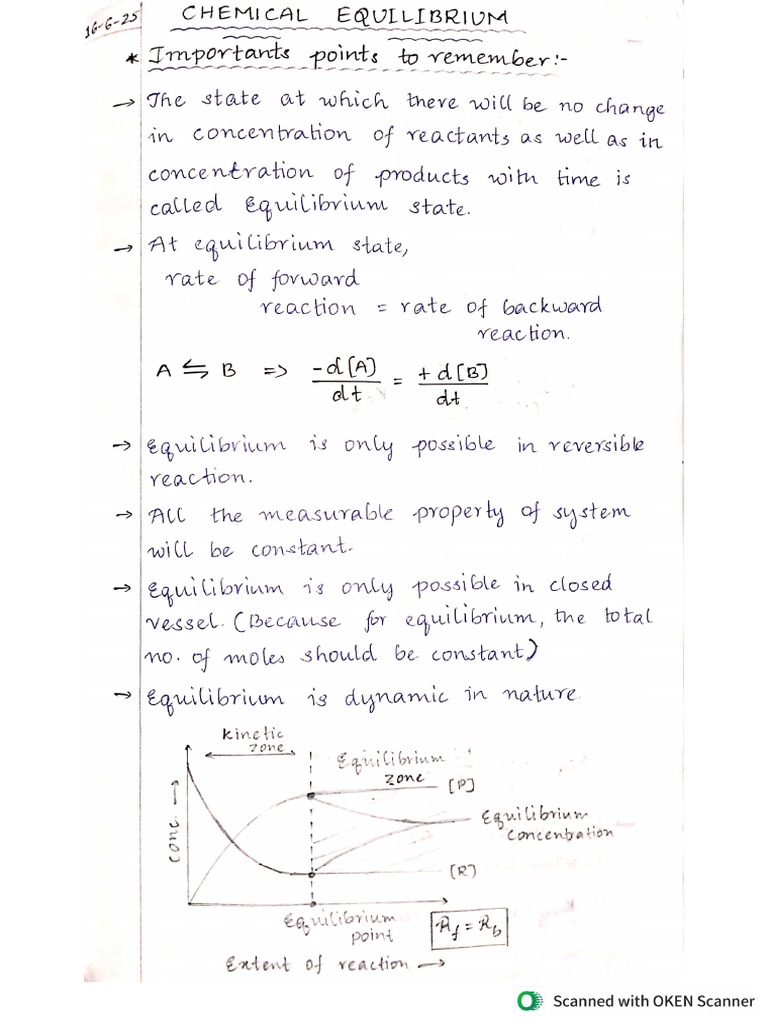 16-6-25
CHEMICAL EQUILIBRIUM
* Importants points to remember:-
→ The state at which there will be no change
in concentration of reactants as well as in
concentration of products with time is
called Equilibrium state.
→ At equilibrium state,
rate of forward
reaction = rate of backward
reaction.
A ⇆ B => -d[A]/dt = +d[B]/dt
→ Equilibrium is only possible in reversible
reaction.
→ All the measurable property of system
will be constant.
→ Equilibrium is only possible in closed
vessel. (Because for equilibrium, the total
no. of moles should be constant)
→ Equilibrium is dynamic in nature.
kinetic
zone
Equilibrium
zone
[P]
Equilibrium
concentration
conc →
[R]
Equilibrium
point
Rf = Rb
Extent of reaction →
Scanned with OKEN Scanner